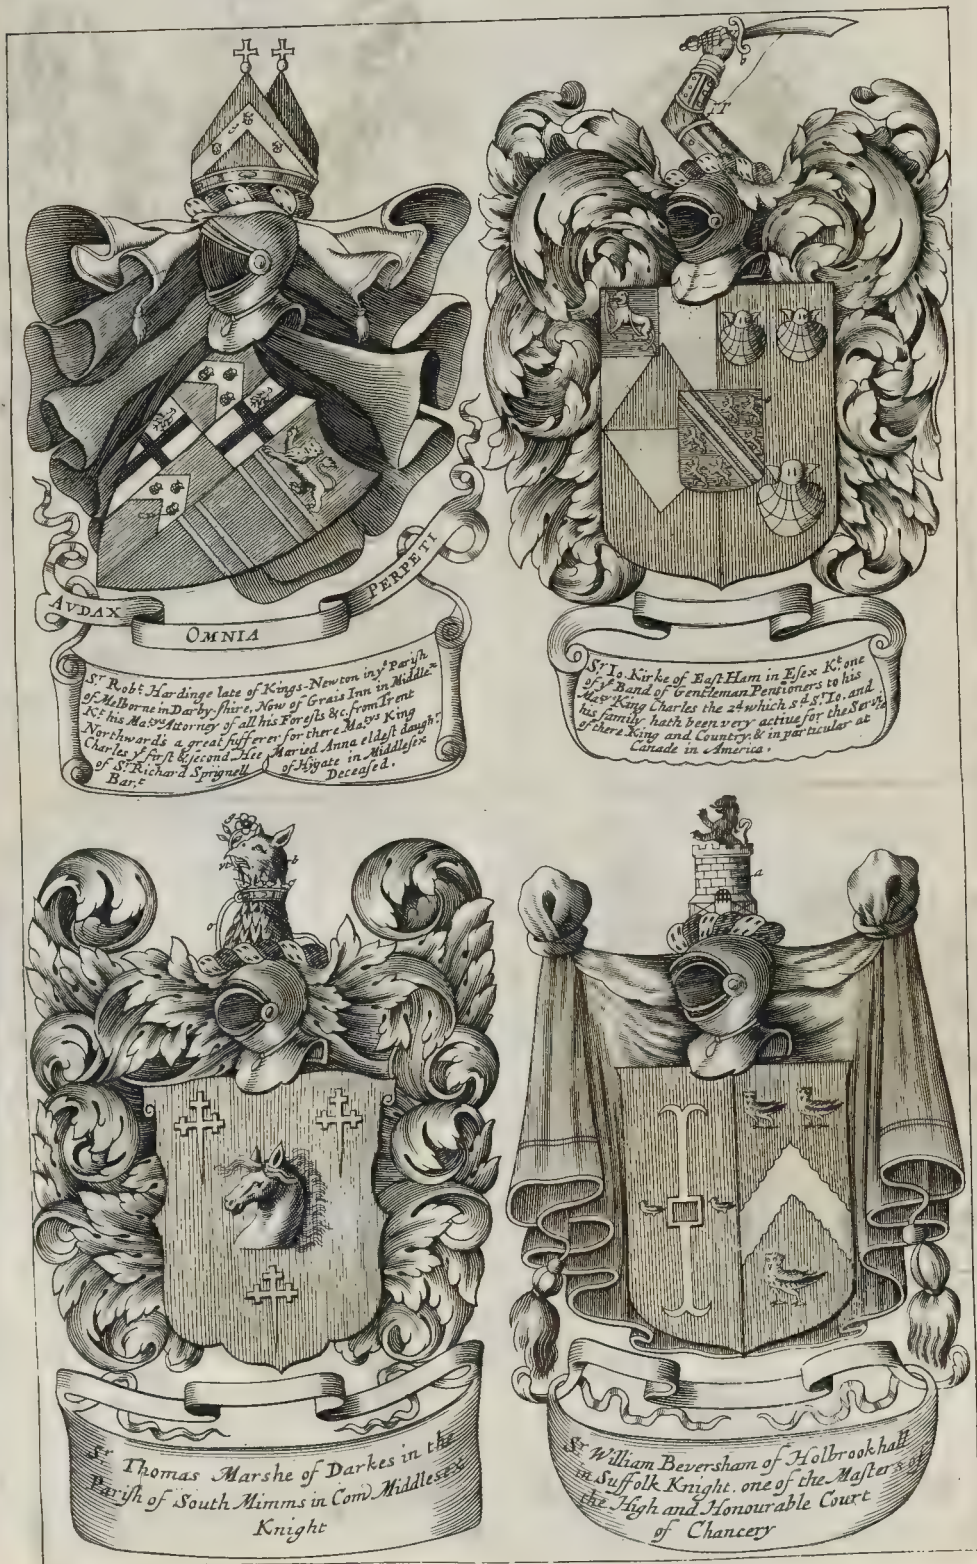 AVDAX OMNIA PERPETI
Sr Robt Hardinge late of Kings-Newton in ye Parish
of Melborne in Darby-shire, Now of Grais Inn in Middlex
Kt his Matys Attorney of all his Forests &c, from Trent
Northward's a great sufferer for there Matys King
Charles ye first & second Hee Maried Anna eldest daughr
of Sr Richard Sprignell of Hygate in Middlesex
Bart Deceased.
Sr Io. Kirke of East Ham in Essex Kt one
of ye Band of Gentleman Pentioners to his
Maty King Charles the 2d which sd Sr Io, and
his family hath been very active for the Servce
of there King and Country, & in particular at
Canade in America.
a
Sr Thomas Marshe of Darkes in the
Parish of South Mimms in Com Middlesex
Knight
Sr William Beversham of Holbrookhall
in Suffolk Knight. one of the Masters of
the High and Honourable Court
of Chancery